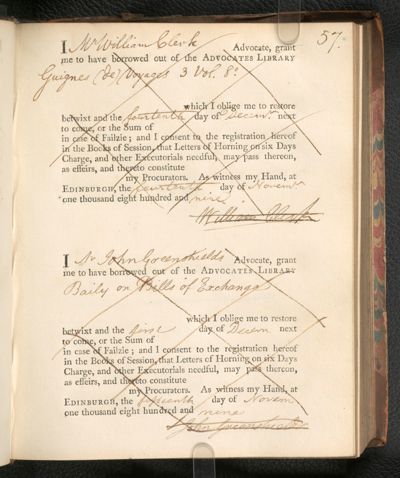 57.
I Mr William Clerk Advocate, grant
me to have borrowed out of the ADVOCATES LIBRARY
Guignes (de) Voyages 3 Vol. 8°.
which I oblige me to restore
betwixt and the fourteenth day of Decemr. next
to come, or the Sum of
in case of Failzie; and I consent to the registration hereof
in the Books of Session, that Letters of Horning on six Days
Charge, and other Executorials needful, may pass thereon,
as effeirs, and thereto constitute
my Procurators. As witness my Hand, at
EDINBURGH, the fourteenth day of Novemr.
one thousand eight hundred and nine
William Clerk
I Mr John Greenshields Advocate, grant
me to have borrowed out of the ADVOCATES LIBRARY
Baily on Bills of Exchange
which I oblige me to restore
betwixt and the first day of Decem next
to come, or the Sum of
in case of Failzie; and I consent to the registration hereof
in the Books of Session, that Letters of Horning on six Days
Charge, and other Executorials needful, may pass thereon,
as effeirs, and thereto constitute
my Procurators. As witness my Hand, at
EDINBURGH, the fifteenth day of Novem
one thousand eight hundred and nine
John Greenshields